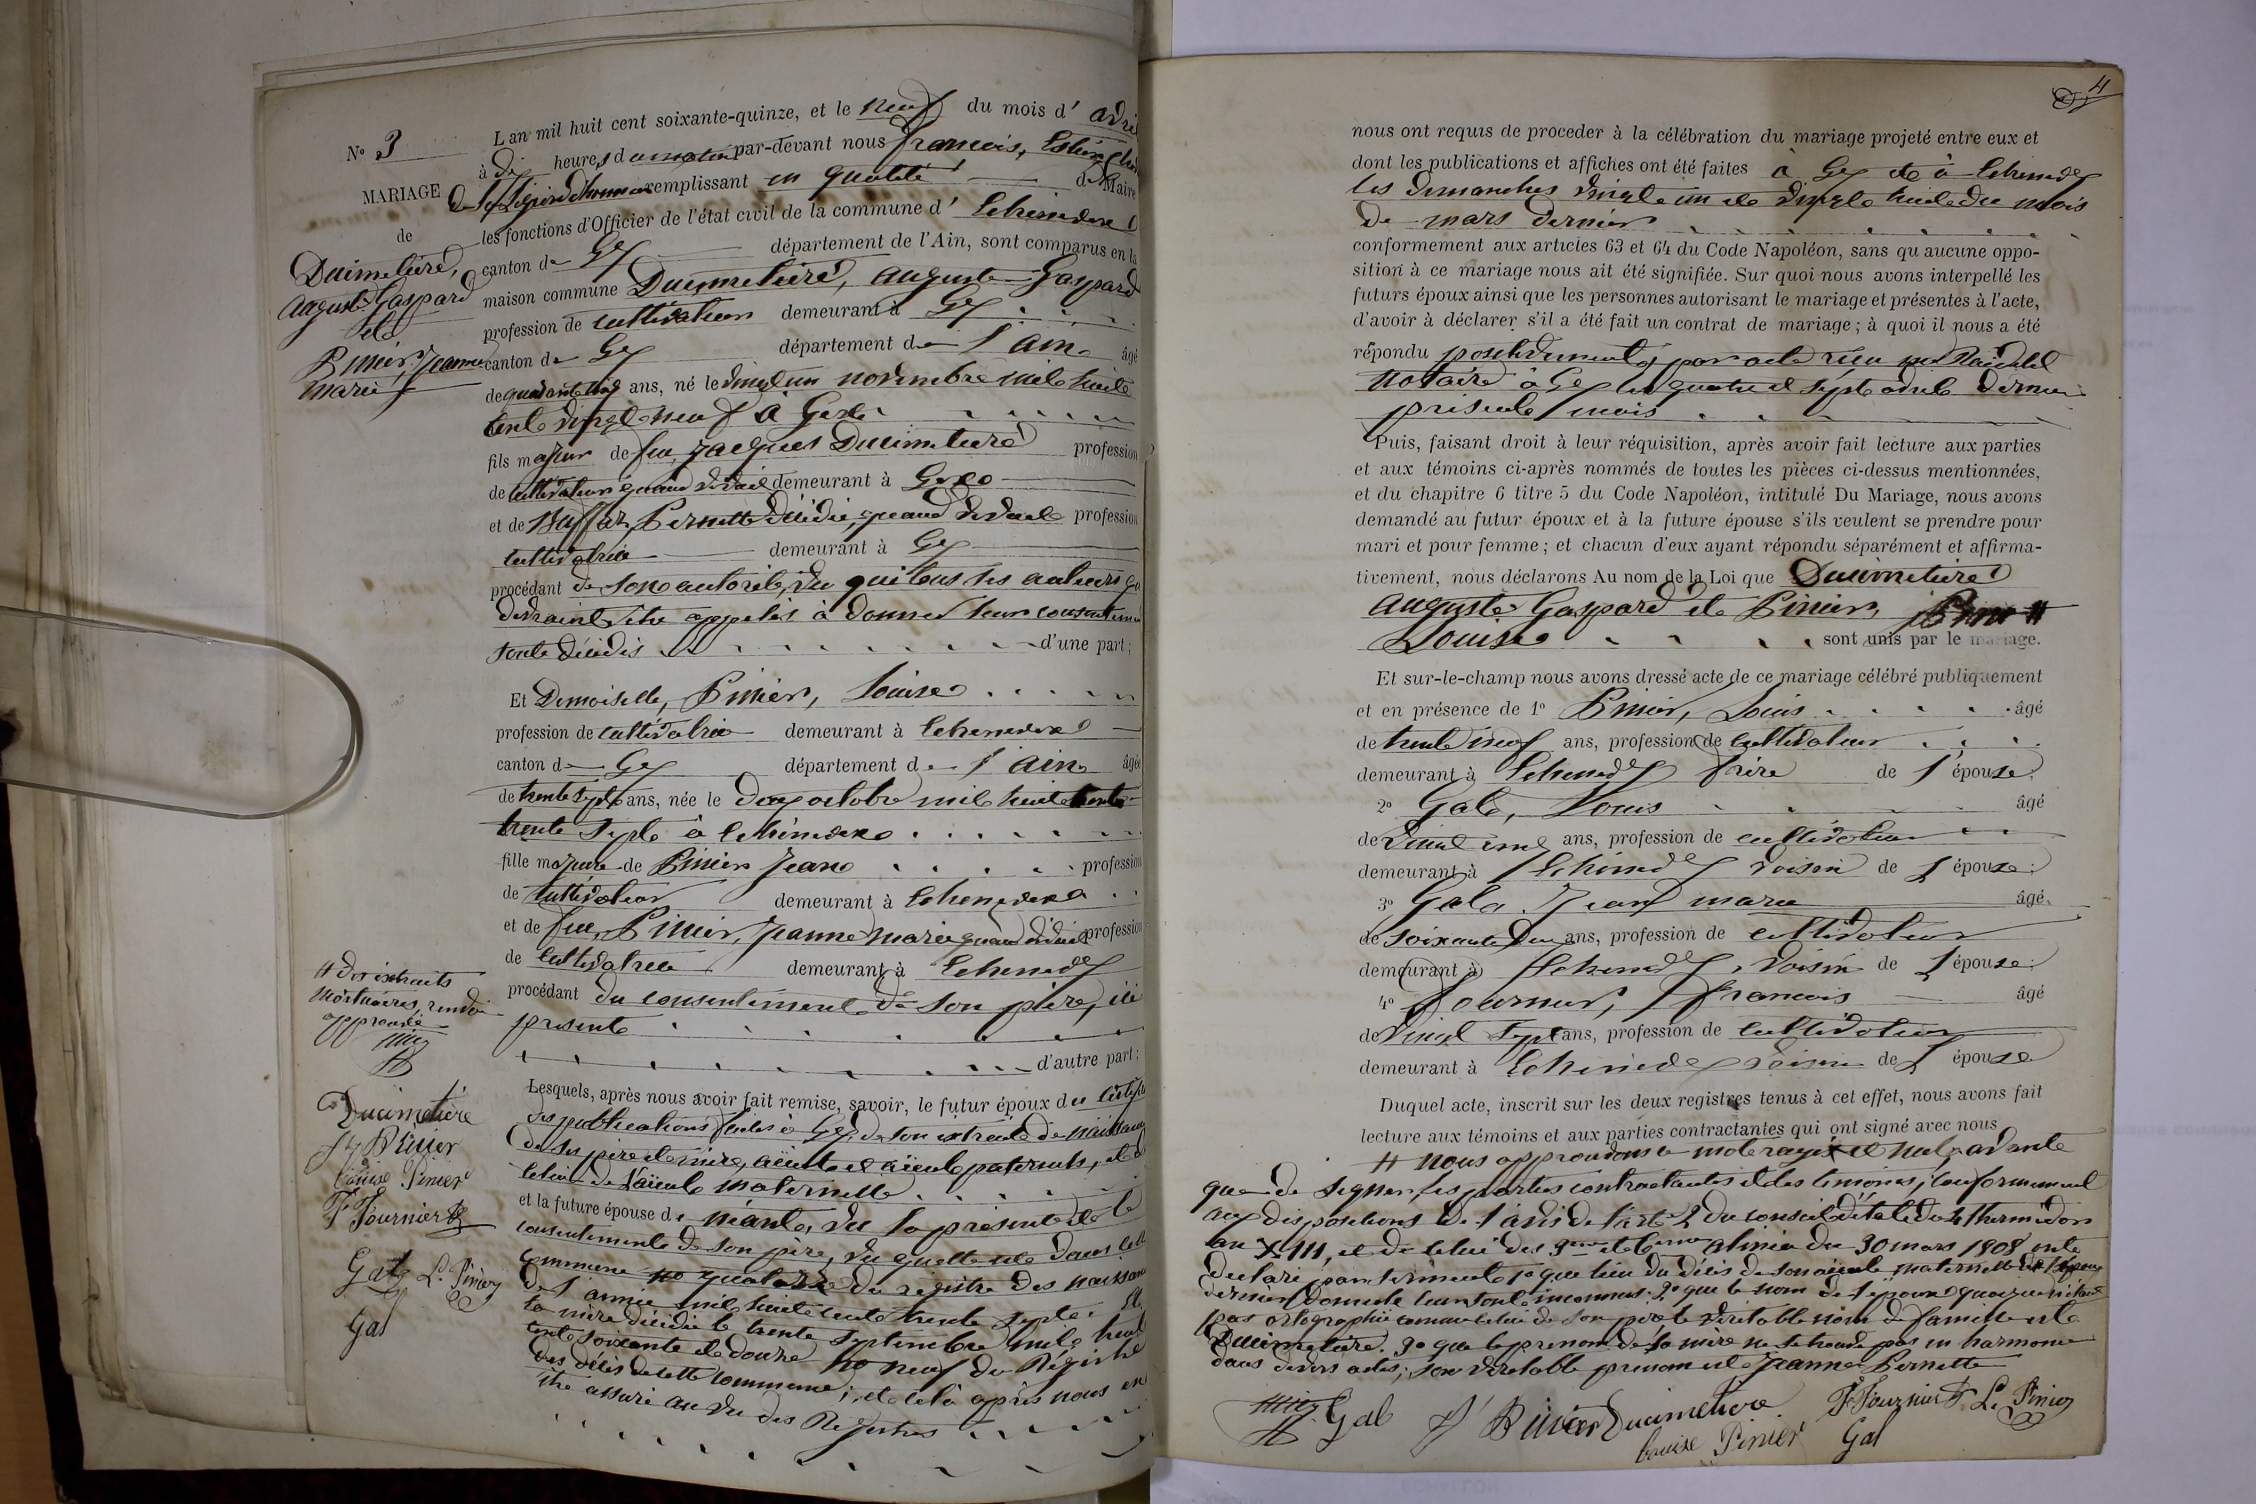 N° 3
MARIAGE
de
Ducimetière,
Auguste Gaspard
et
Pinier, Jeanne
Marie
L'an mil huit cent soixante-quinze, et le neuf du mois d'avril
à dix heures du matin par-devant nous François,
de la Légion d'honneur remplissant en qualité de Maire
les fonctions d'Officier de l'état civil de la commune d'Echenevex
canton de Gex département de l'Ain, sont comparus en la
maison commune Ducimetière, Auguste Gaspard
profession de cultivateur demeurant à Gex
canton de Gex département de l'ain âgé
de quarante cinq ans, né le vingt un novembre mil huit
cent vingt neuf à Gex
fils majeur de feu Jacques Ducimetière profession
de cultivateur quand vivait demeurant à Gex
et de Pernette décédée, quand vivait profession
cultivatrice demeurant à Gex
procédant de son autorité, vu que tous les auteurs qui
devraient être appelés à donner leur consentement
sont décédés d'une part;
Et Demoiselle, Pinier, Louise
profession de cultivatrice demeurant à Echenevex
canton de Gex département de l'ain âgée
de trente sept ans, née le deux octobre mil huit cent
trente sept à Echenevex
fille majeure de Pinier Jean profession
de cultivateur demeurant à Echenevex
et de feue, Pinier, Jeanne Marie quand vivait profession
de cultivatrice demeurant à Echenevex
procédant du consentement de son père, ici
présent
d'autre part;
# des extraits
mortuaires, renvoi
approuvé
Lesquels, après nous avoir fait remise, savoir, le futur époux du certificat
des publications faites à Gex, de son extrait de naissance
de ses père et mère, aïeul et aïeule paternels, et de
celui de l'aïeul maternelle
et la future épouse de néant, vu la présente et le
consentement de son père, vu qu'elle est dans cette
commune no quatorze du registre des naissances
de l'année mil huit cent trente sept;
la mère décédée le trente septembre mil huit
cent soixante et douze no neuf du Registre
des décès de cette commune; et cela après nous en
être assuré au vu des Registres
Ducimetière
J Pinier
Louise Pinier
F Fournier
Gal L. Pinier
Gal
4
nous ont requis de proceder à la célébration du mariage projeté entre eux et
dont les publications et affiches ont été faites à Gex et à Echenevex
les dimanches vingt un et vingt huit du mois
de mars dernier
conformement aux articles 63 et 64 du Code Napoléon, sans qu'aucune oppo-
sition à ce mariage nous ait été signifiée. Sur quoi nous avons interpellé les
futurs époux ainsi que les personnes autorisant le mariage et présentes à l'acte,
d'avoir à déclarer s'il a été fait un contrat de mariage; à quoi il nous a été
répondu par acte reçu
notaire à Gex les quatre et sept avril
présent mois
Puis, faisant droit à leur réquisition, après avoir fait lecture aux parties
et aux témoins ci-après nommés de toutes les pièces ci-dessus mentionnées,
et du chapitre 6 titre 5 du Code Napoléon, intitulé Du Mariage, nous avons
demandé au futur époux et à la future épouse s'ils veulent se prendre pour
mari et pour femme; et chacun d'eux ayant répondu séparément et affirma-
tivement, nous déclarons Au nom de la Loi que Ducimetière
Auguste Gaspard et Pinier, #
Louise sont unis par le mariage.
Et sur-le-champ nous avons dressé acte de ce mariage célébré publiquement
et en présence de 1° Pinier, Louis âgé
de trente neuf ans, profession de cultivateur
demeurant à Echenevex frère de l'épouse.
2° Gal, Louis âgé
de ans, profession de cultivateur
demeurant à Echenevex voisin de l'épouse;
3° Gal Jean marie âgé
de soixante deux ans, profession de cultivateur
demeurant à Echenevex, voisin de l'épouse;
4° Fournier, François âgé
de vingt sept ans, profession de cultivateur
demeurant à Echenevex voisin de l'épouse
Duquel acte, inscrit sur les deux registres tenus à cet effet, nous avons fait
lecture aux témoins et aux parties contractantes qui ont signé avec nous
# nous approuvons le mot rayé et nul, avant
que de signer, les parties contractantes et les témoins, conformément
aux dispositions de l'avis du conseil d'état du 4 thermidor
an XIII, et de celui des alinéa du 30 mars 1808 ont
déclaré par serment 1° que lieu du décès de son aïeule maternelle de l'époux
dernier domicile leur sont inconnus. 2° que le nom de l'époux
pas ortographié comme celui de son père le véritable nom de famille est
Ducimetière. 3° que le prénom de sa mère ne se trouve pas en harmonie
dans divers actes; son véritable prénom est Jeanne Pernette
Gal J Pinier Ducimetière F Fournier L. Pinier
Louise Pinier Gal